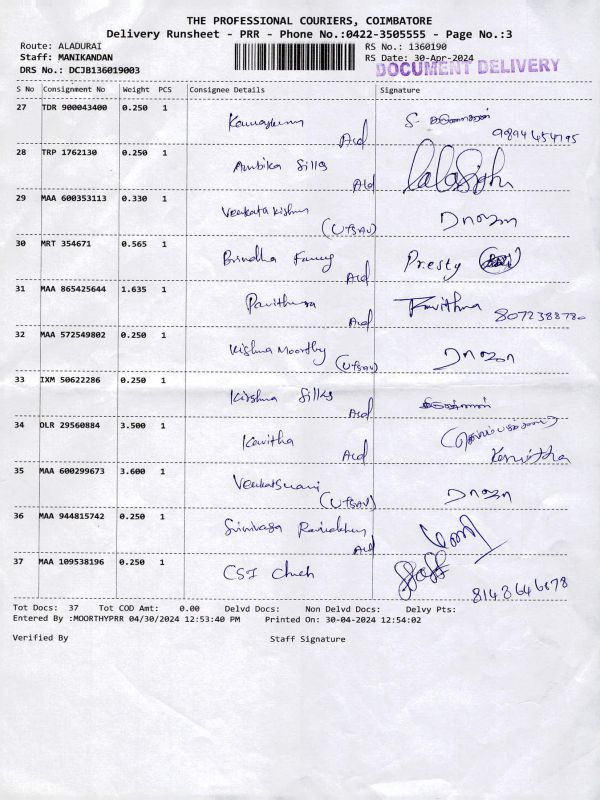 THE PROFESSIONAL COURIERS, COIMBATORE
Delivery Runsheet - PRR - Phone No.:0422-3505555 - Page No.:3
Route: ALADURAI RS No.: 1360190
Staff: MANIKANDAN RS Date: 30-Apr-2024
DRS No.: DCJB136019003 DOCUMENT DELIVERY
S No Consignment No Weight PCS Consignee Details Signature
27 TDR 900043400 0.250 1 S.
Ald 9894454795
28 TRP 1762130 0.250 1 Ambika Silks
Ald
29 MAA 600353113 0.330 1 Venkata Kishnu
(UTSAV)
30 MRT 354671 0.565 1 Brindha Fancy Presty
Ald
31 MAA 865425644 1.635 1 Pavithura Pavithra
Ald 8072388780
32 MAA 572549802 0.250 1 Kishna Moorthy
(UTSAV)
33 IXM 50622286 0.250 1 Kirshna Silks
Ald
34 DLR 29560884 3.500 1 Kavitha
Ald Kavitha
35 MAA 600299673 3.600 1 Venkatswami
(UTSAV)
36 MAA 944815742 0.250 1 Srinivasa
Ald
37 MAA 109538196 0.250 1 CSI Chuch Staff
8148646678
Tot Docs: 37 Tot COD Amt: 0.00 Delvd Docs: Non Delvd Docs: Delvy Pts:
Entered By :MOORTHYPRR 04/30/2024 12:53:40 PM Printed On: 30-04-2024 12:54:02
Verified By Staff Signature